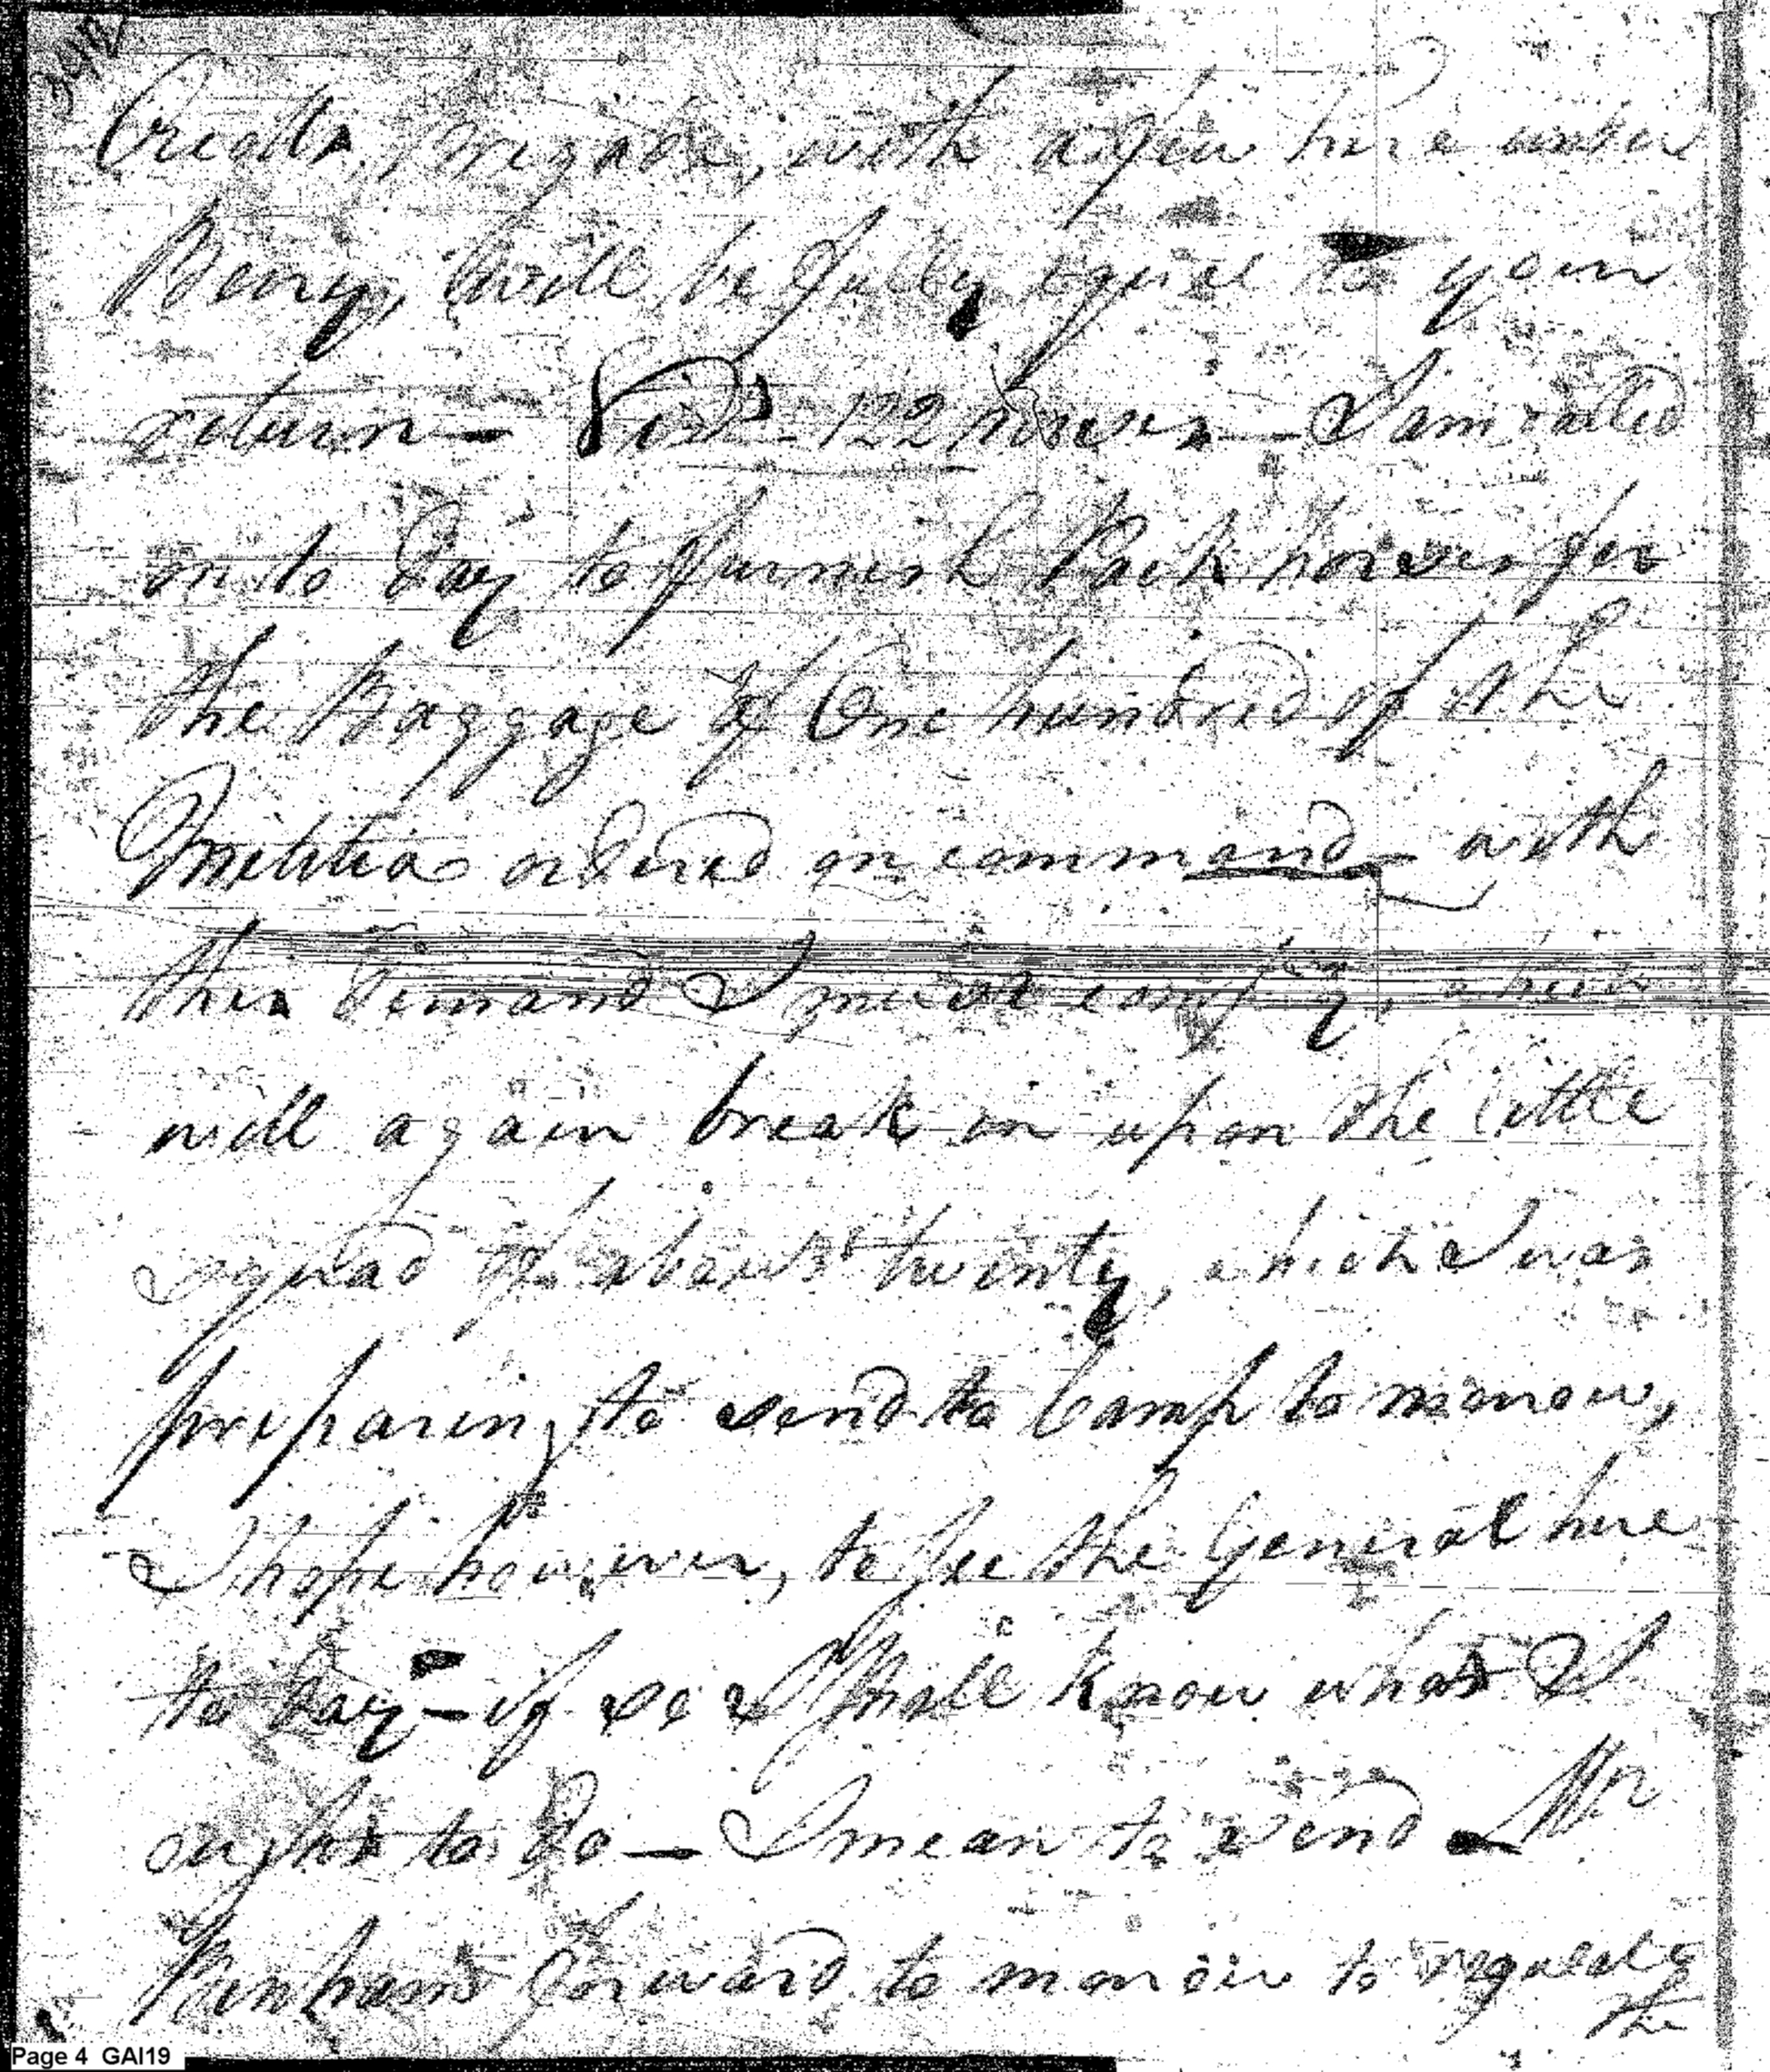 Creeks, Brigade, with a few here under
Beny, will be fully equal to your
return — Vizt 122 horses — I am called
on to day to furnish Pack horses for
the Baggage of One hundred of the
Militia ordered on command — with
this demand I must comply, which
will again break in upon the little
squad of about twenty, which I was
preparing to send to Camp to morrow,
I hope however, to see the General here
to day — if so I shall know what I
ought to do — I mean to send Mr
Benham forward to morrow to regulate
the
Page 4 GAI19